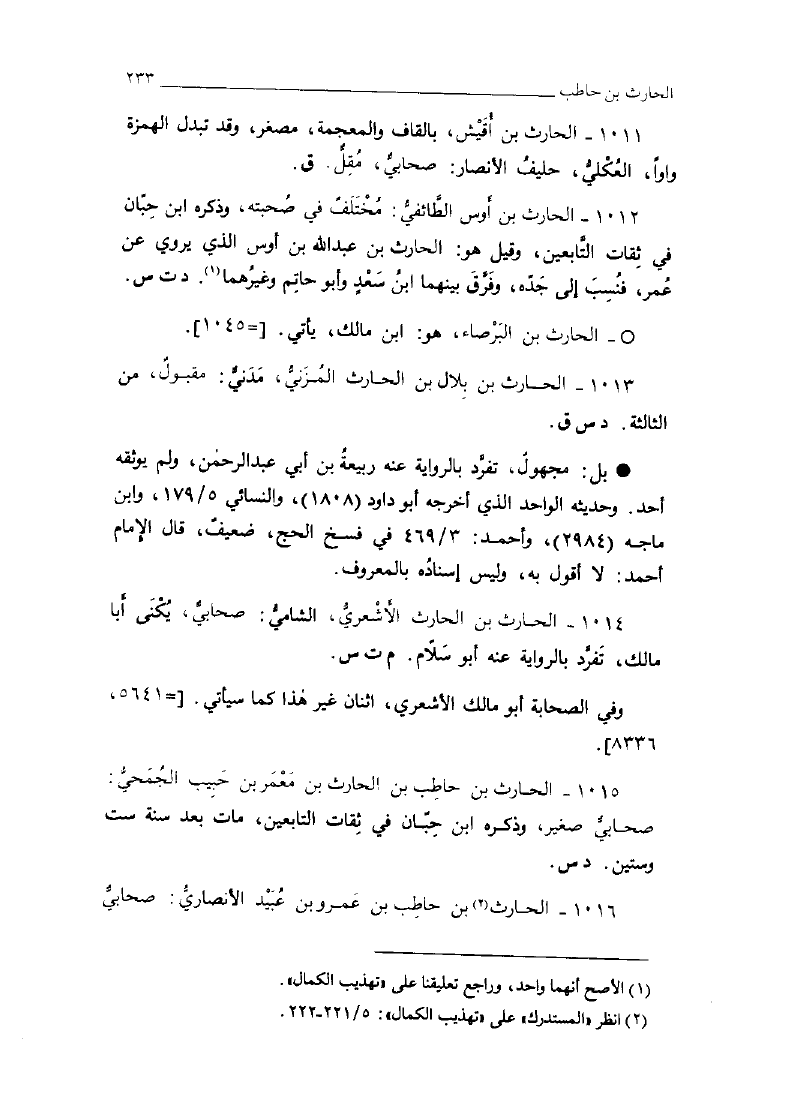 الحارث بن حاطب ٢٣٣
١٠١١ - الحارث بن أُقَيْش، بالقاف والمعجمة، مصغر، وقد تبدل الهمزة
واواً، العُكْليُّ، حليفُ الأنصار: صحابيُّ، مُقِلٌّ. ق.
١٠١٢ - الحارث بن أوس الطَّائفيُّ: مُخْتَلَفٌ في صُحبته، وذكره ابن حِبَّان
في ثِقات التَّابعين، وقيل هو: الحارث بن عبدالله بن أوس الذي يروي عن
عُمر، فنُسِبَ إلى جَدّه، وفَرَّق بينهما ابنُ سَعْدٍ وأبو حاتِم وغيرُهما(١). د ت س.
○ - الحارث بن البَرْصاء، هو: ابن مالك، يأتي. [=١٠٤٥].
١٠١٣ - الحارث بن بِلال بن الحارث المُزَنيُّ، مَدَنيٌّ: مقبولٌ، من
الثالثة. د س ق.
● بل: مجهولٌ، تفرَّد بالرواية عنه ربيعةُ بن أبي عبدالرحمٰن، ولم يوثقه
أحد. وحديثه الواحد الذي أخرجه أبو داود (١٨٠٨)، والنسائي ١٧٩/٥، وابن
ماجه (٢٩٨٤)، وأحمد: ٤٦٩/٣ في فسخ الحج، ضعيفٌ، قال الإمام
أحمد: لا أقول به، وليس إسنادُه بالمعروف.
١٠١٤ - الحارث بن الحارث الأَشْعريُّ، الشاميُّ: صحابيٌّ، يُكْنَى أبا
مالك، تَفرَّد بالرواية عنه أبو سَلَّام. م ت س.
وفي الصحابة أبو مالك الأشعري، اثنان غير هٰذا كما سيأتي. [=٥٦٤١،
٨٣٣٦].
١٠١٥ - الحارث بن حاطِب بن الحارث بن مَعْمَر بن حَبِيب الجُمَحيُّ:
صحابيٌّ صغير، وذكره ابن حِبَّان في ثِقات التابعين، مات بعد سنة ست
وستين. د س.
١٠١٦ - الحارث(٢) بن حاطِب بن عَمرو بن عُبَيْد الأنصاريُّ: صحابيٌّ
(١) الأصح أنهما واحد، وراجع تعليقنا على «تهذيب الكمال».
(٢) انظر «المستدرك» على «تهذيب الكمال»: ٢٢١/٥-٢٢٢.